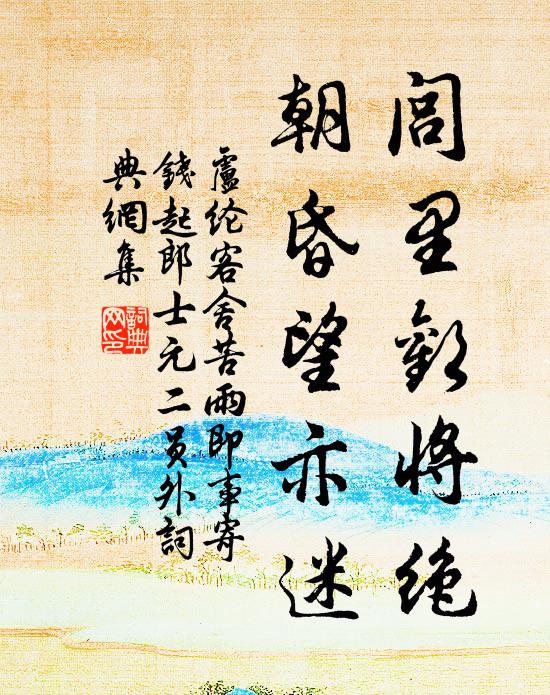 閭里歡將絶
朝昏望亦迷
盧纶客舍苦雨即事寄
錢起郎士元二員外詞
典網集
詞典
网印